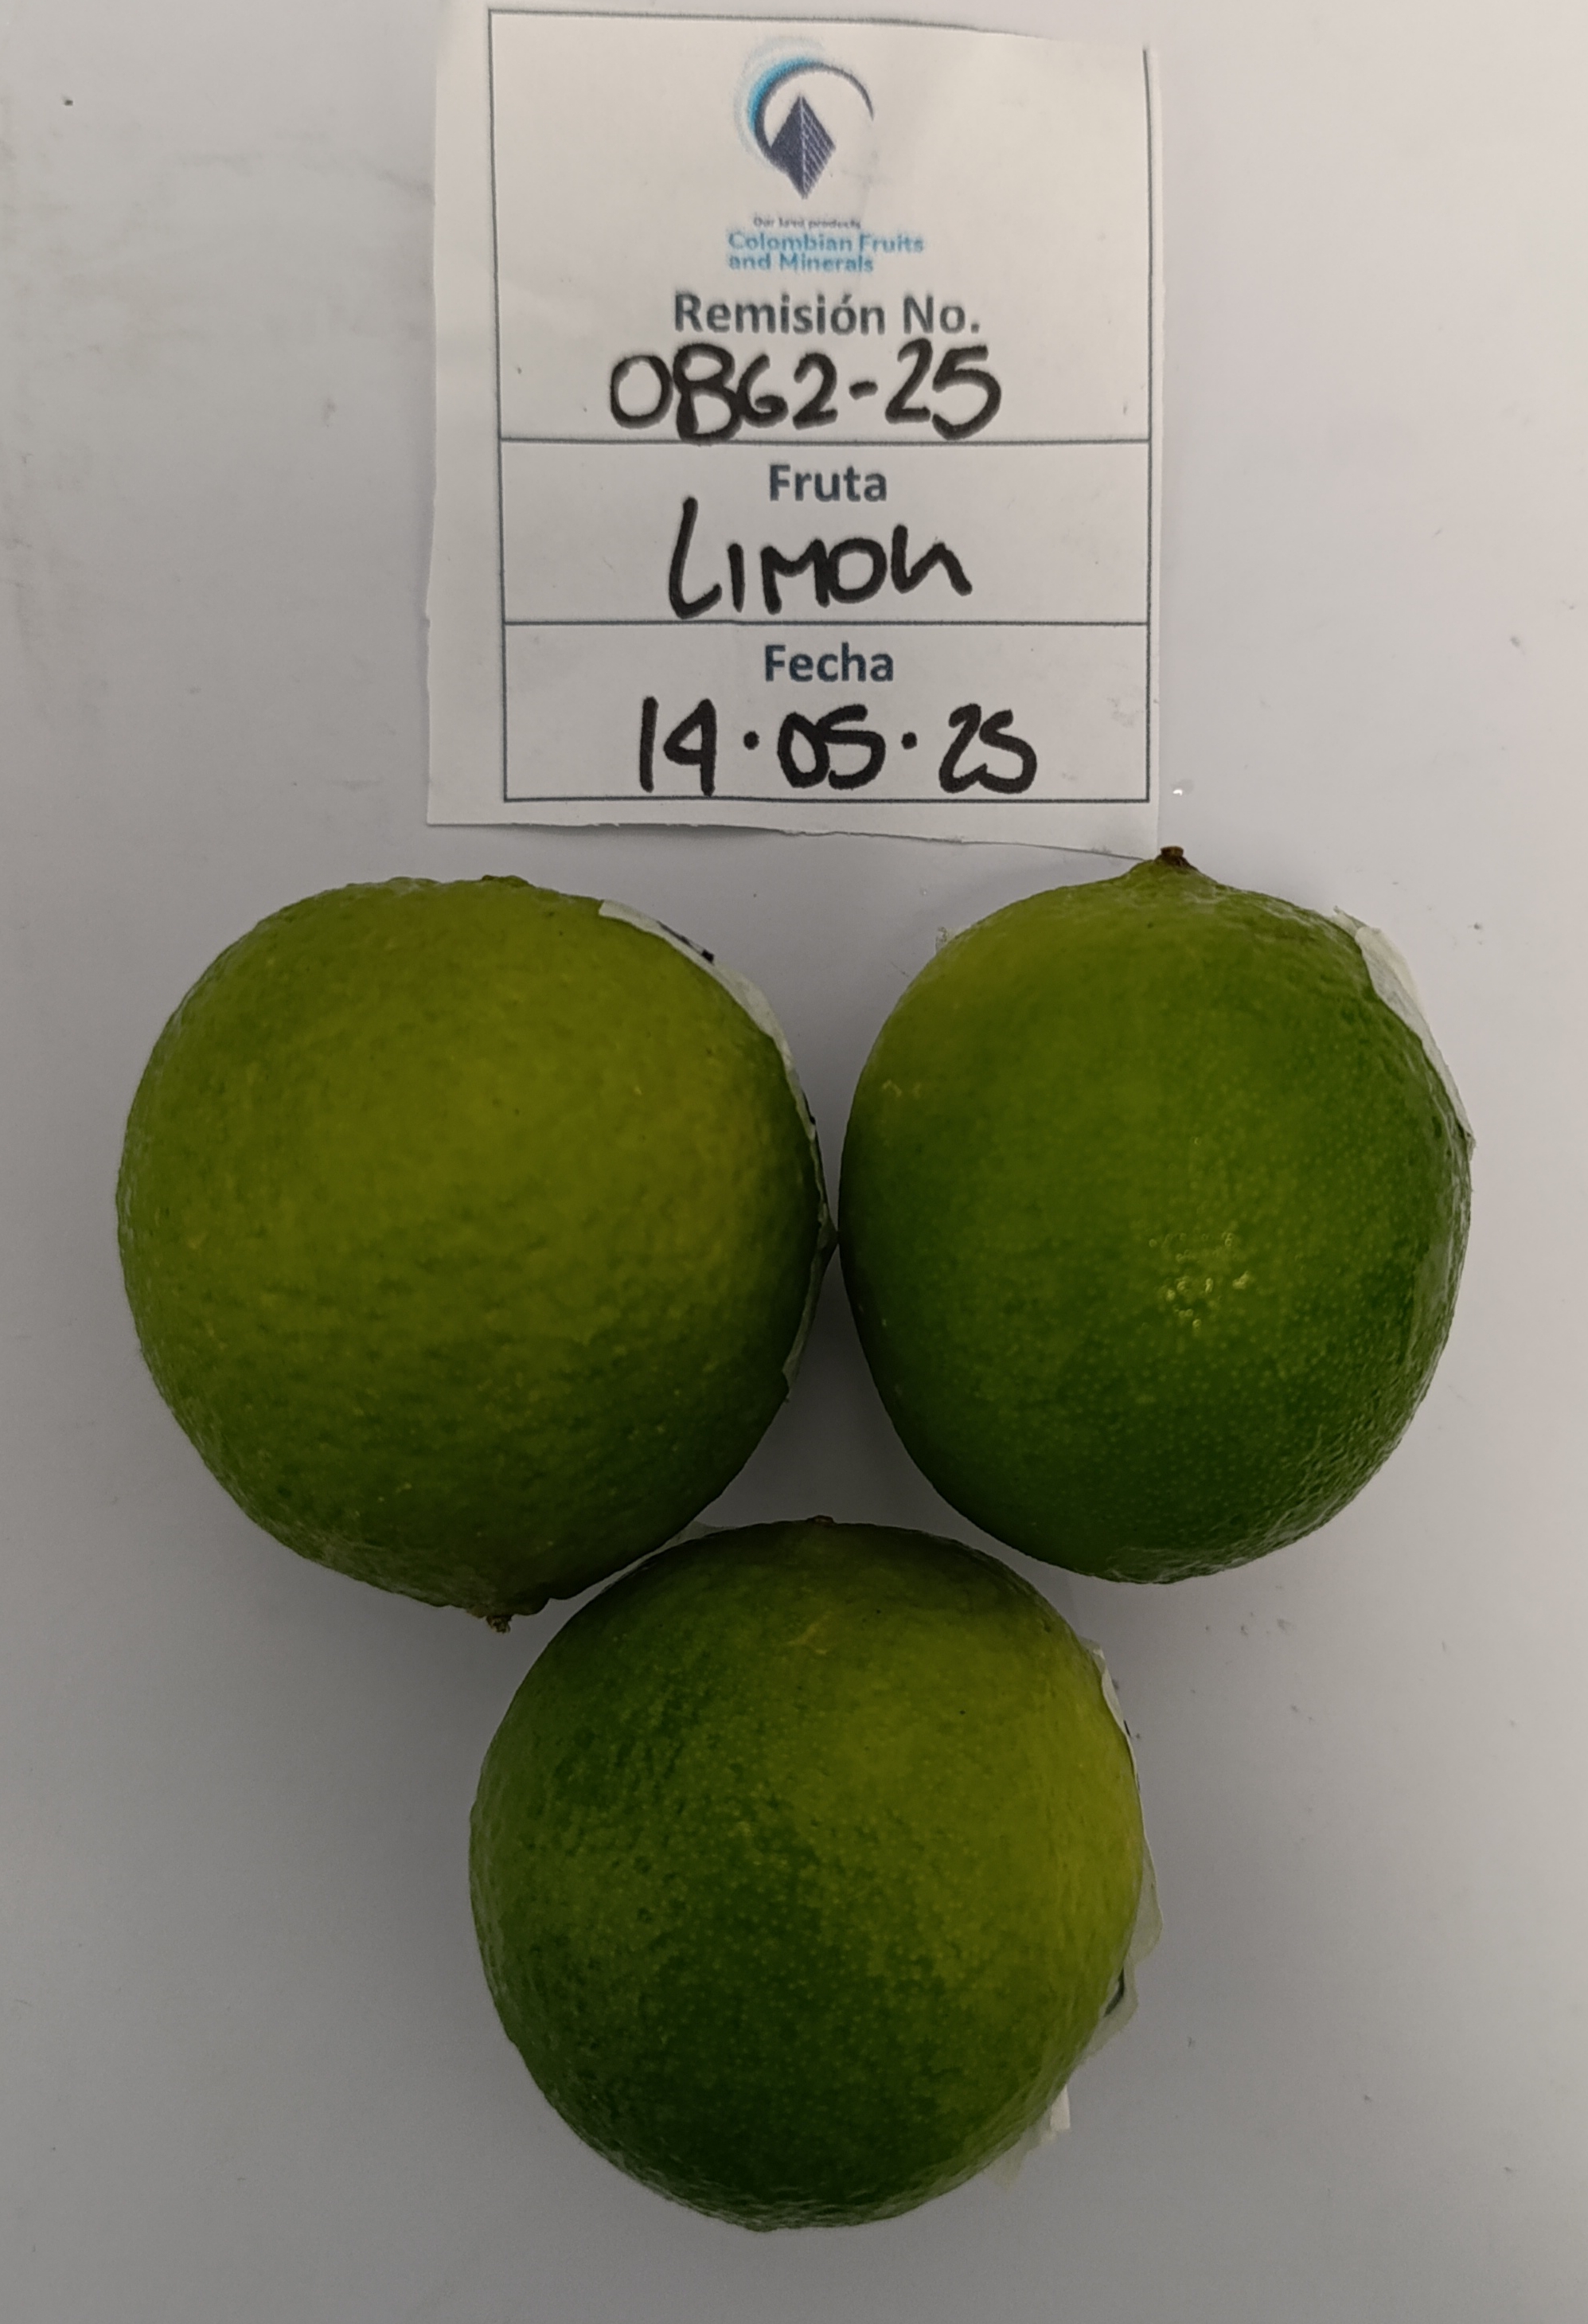 Our land products
Colombian Fruits
and Minerals
Remisión No.
0862-25
Fruta
LIMON
Fecha
14.05.25